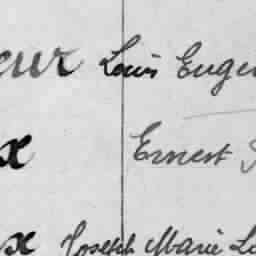 eur Louis Euge
x Ernest
x Joseph Marie L